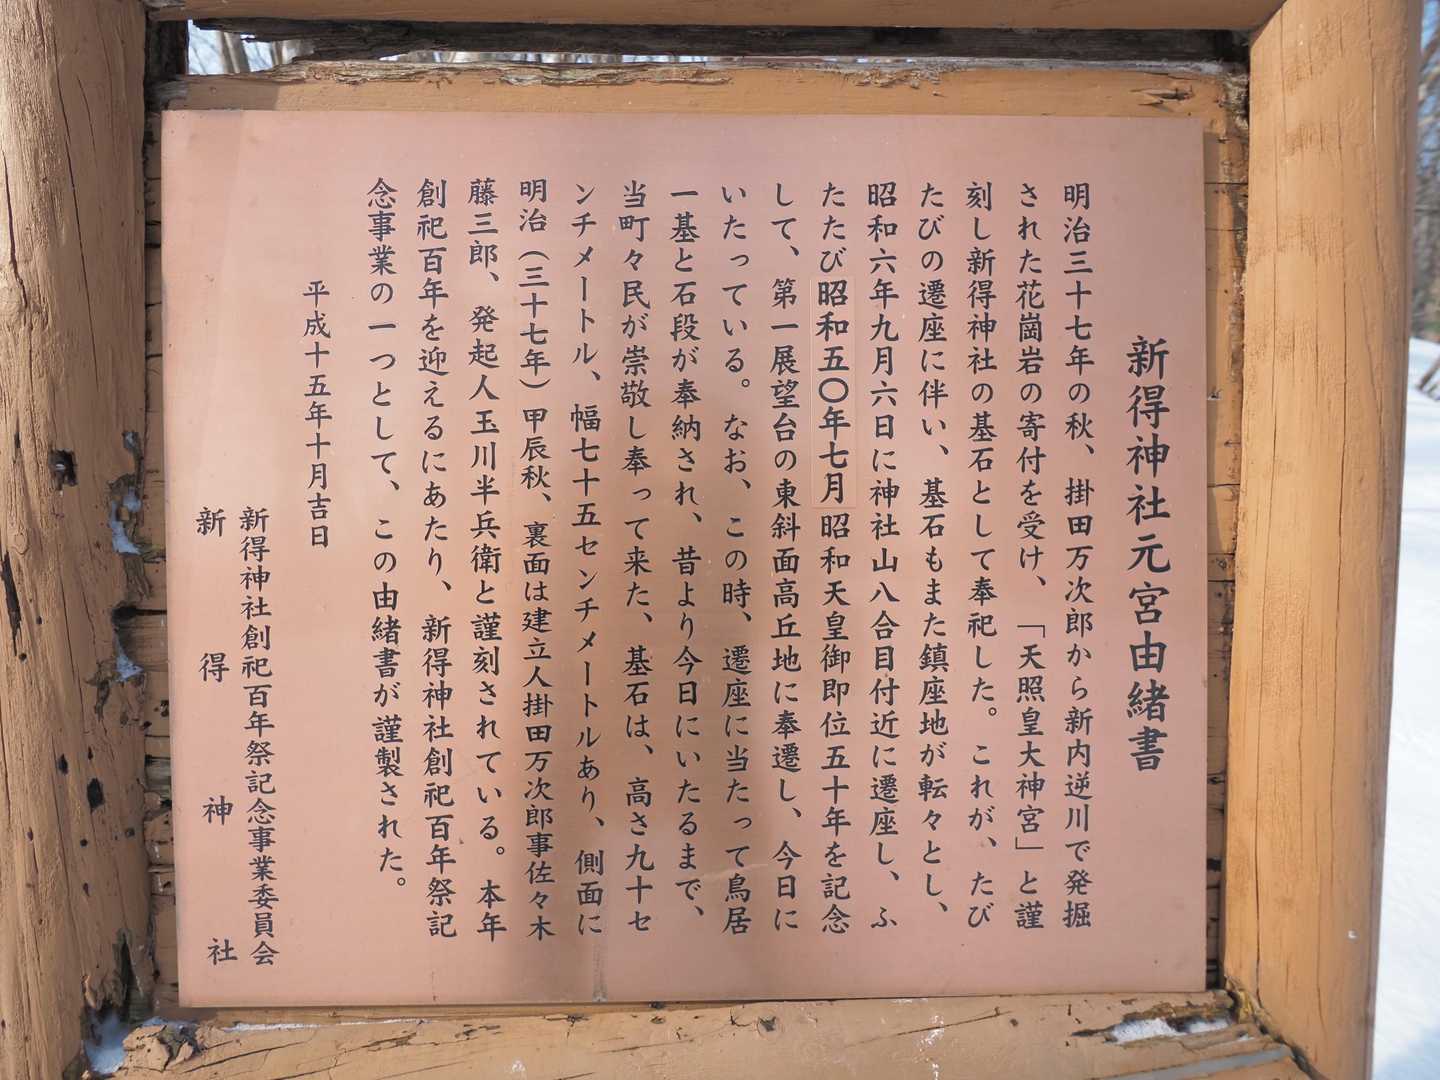 新得神社元宮由緒書
明治三十七年の秋、掛田万次郎から新内逆川で発掘
された花崗岩の寄付を受け、「天照皇大神宮」と謹
刻し新得神社の基石として奉祀した。これが、たび
たびの遷座に伴い、基石もまた鎮座地が転々とし、
昭和六年九月六日に神社山八合目付近に遷座し、ふ
たたび昭和五〇年七月昭和天皇御即位五十年を記念
して、第一展望台の東斜面高丘地に奉遷し、今日に
いたっている。なお、この時、遷座に当たって鳥居
一基と石段が奉納され、昔より今日にいたるまで、
当町々民が崇敬し奉って来た、基石は、高さ九十セ
ンチメートル、幅七十五センチメートルあり、側面に
明治（三十七年）甲辰秋、裏面は建立人掛田万次郎事佐々木
藤三郎、発起人玉川半兵衛と謹刻されている。本年
創祀百年を迎えるにあたり、新得神社創祀百年祭記
念事業の一つとして、この由緒書が謹製された。
平成十五年十月吉日
新得神社創祀百年祭記念事業委員会
新得神社